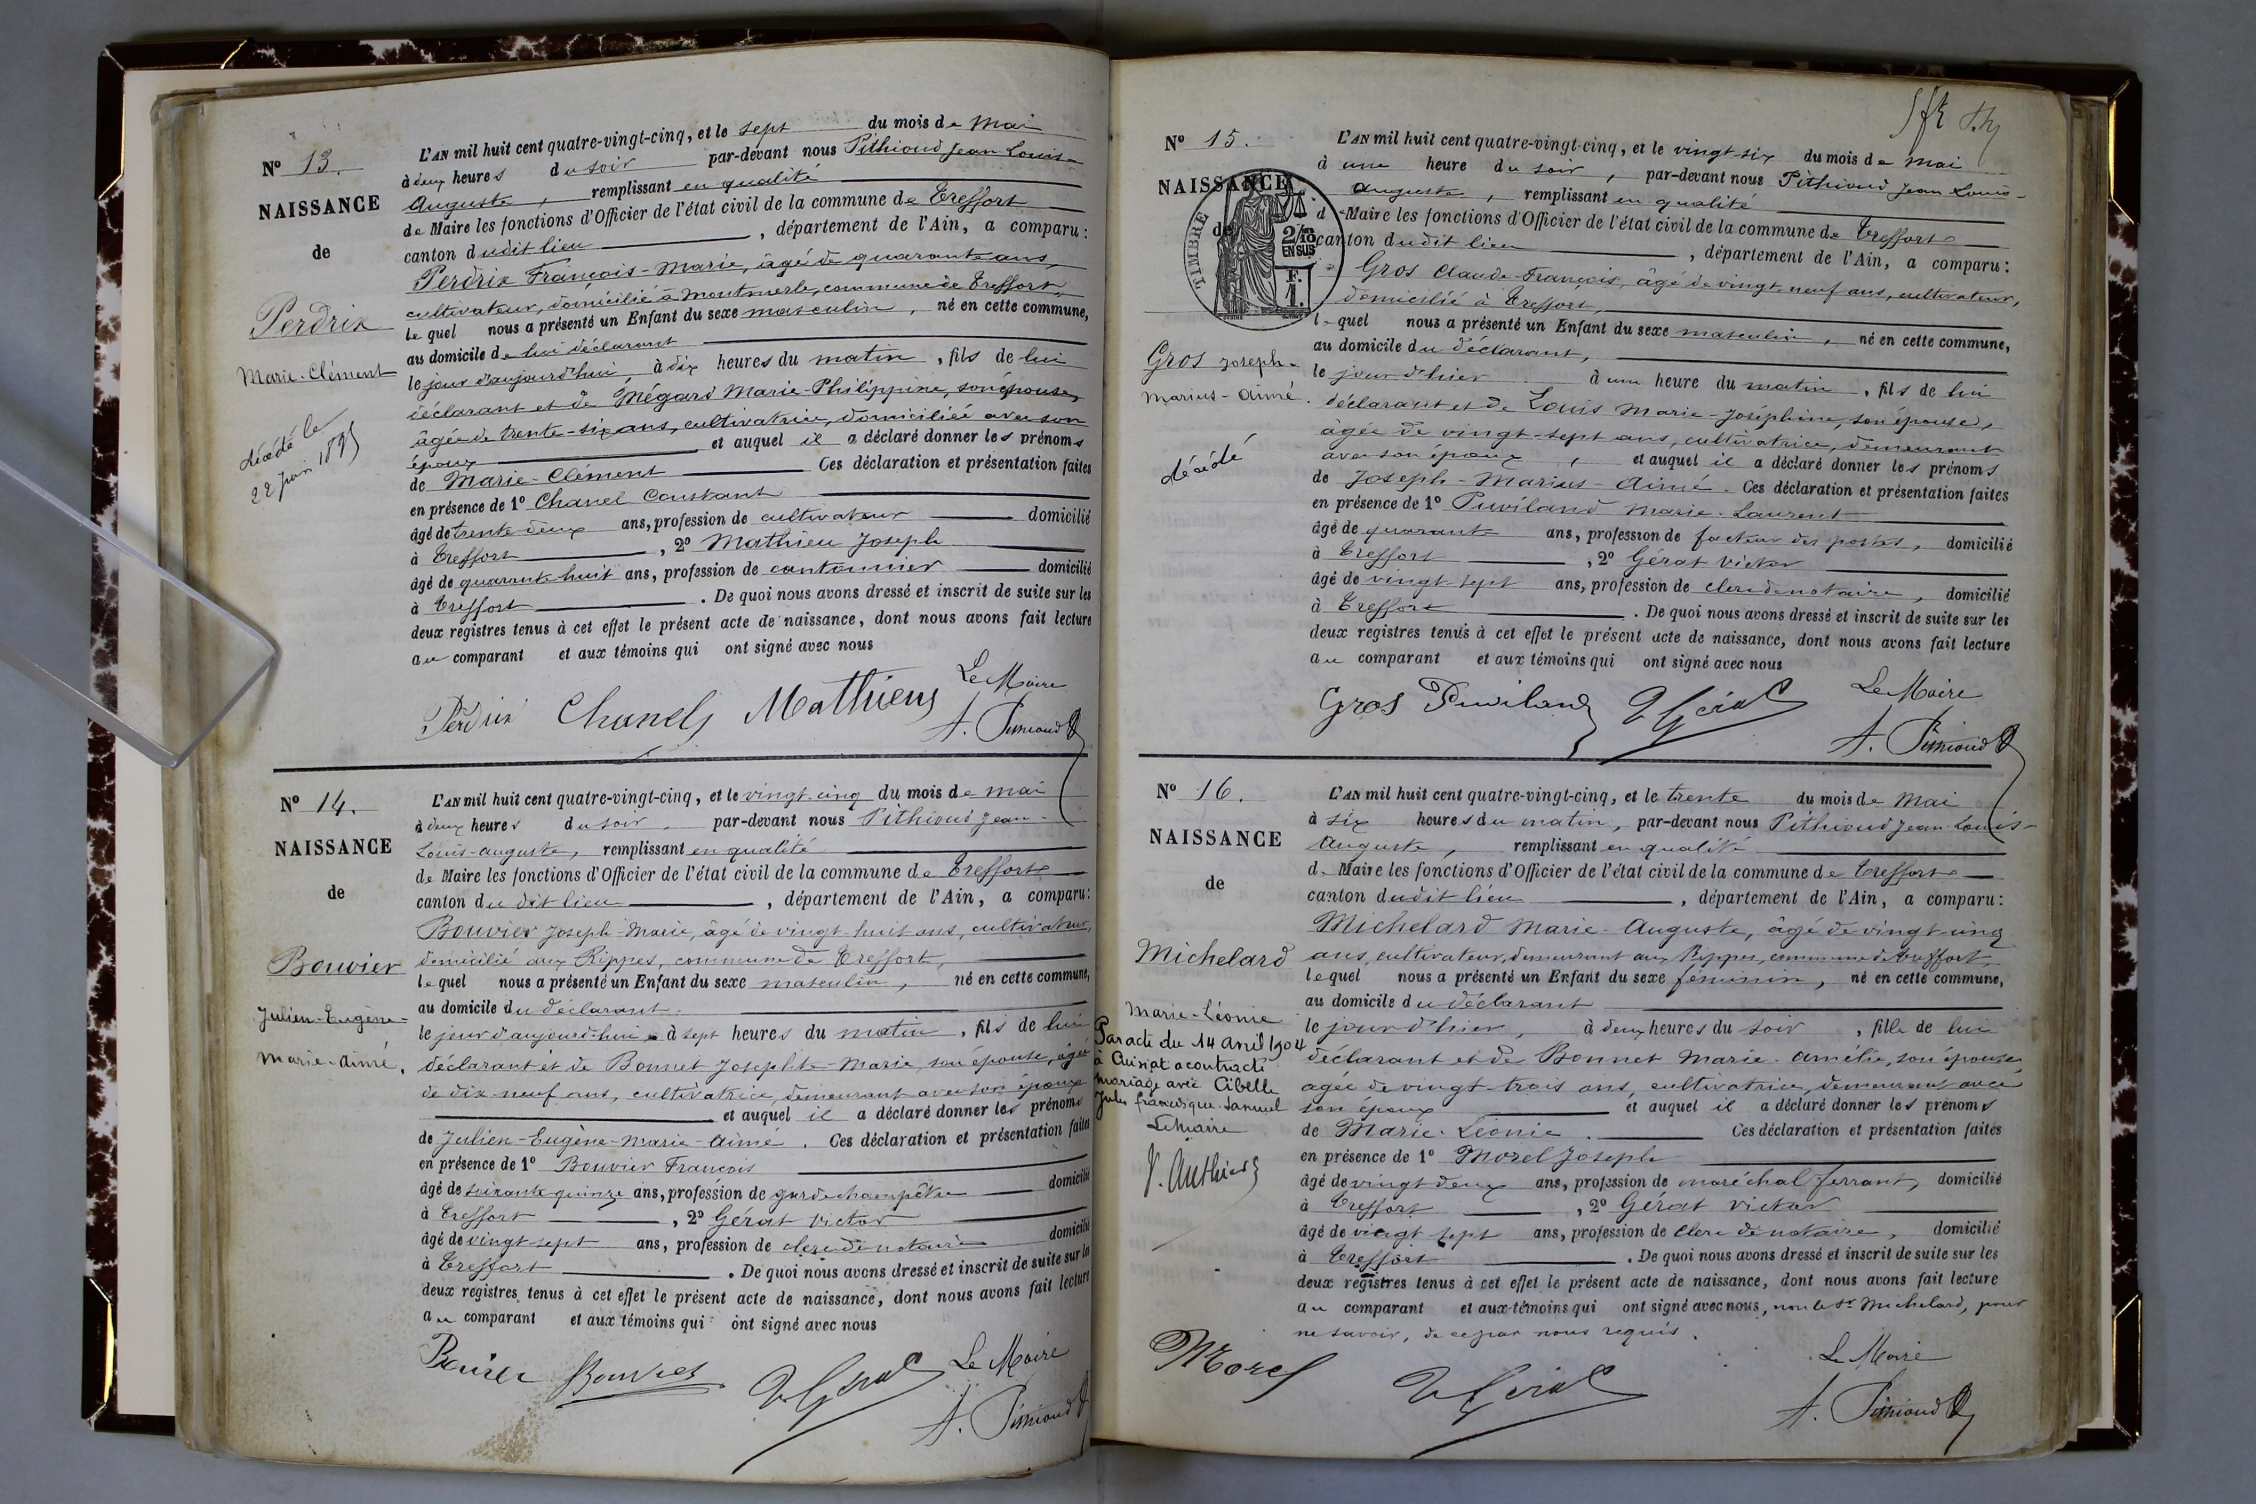 N° 13.
NAISSANCE
de
Perdrix
Marie-Clément
décédé le
22 juin 1895
L'AN mil huit cent quatre-vingt-cinq, et le sept du mois de Mai
à deux heures du soir par-devant nous Pithioud Jean Louis-
Auguste, remplissant en qualité
de Maire les fonctions d'Officier de l'état civil de la commune de Treffort
canton dudit lieu, département de l'Ain, a comparu:
Perdrix François-Marie, âgé de quarante ans,
cultivateur, domicilié à Montmerle, commune de Treffort,
lequel nous a présenté un Enfant du sexe masculin, né en cette commune,
au domicile de lui déclarant
le jour d'aujourd'hui à dix heures du matin, fils de lui
déclarant et de Mégard Marie-Philippine, son épouse,
âgée de trente-six ans, cultivatrice, domiciliée avec son
époux et auquel il a déclaré donner les prénoms
de Marie-Clément Ces déclaration et présentation faites
en présence de 1° Chanel Constant
âgé de trente deux ans, profession de cultivateur domicilié
à Treffort, 2° Mathieu Joseph
âgé de quarante-huit ans, profession de cantonnier domicilié
à Treffort. De quoi nous avons dressé et inscrit de suite sur les
deux registres tenus à cet effet le présent acte de naissance, dont nous avons fait lecture
au comparant et aux témoins qui ont signé avec nous
Perdrix Chanel Mathieu Le Maire
A. Pithioud
N° 14.
NAISSANCE
de
Bouvier
Julien-Eugène-
Marie-Aimé.
L'AN mil huit cent quatre-vingt-cinq, et le vingt-cinq du mois de mai
à deux heures du soir par-devant nous Pithioud Jean-
Louis-Auguste, remplissant en qualité
de Maire les fonctions d'Officier de l'état civil de la commune de Treffort
canton dudit lieu, département de l'Ain, a comparu:
Bouvier Joseph-Marie, âgé de vingt-huit ans, cultivateur,
domicilié aux Rippes, commune de Treffort,
lequel nous a présenté un Enfant du sexe masculin, né en cette commune,
au domicile du déclarant
le jour d'aujourd'hui à sept heures du matin, fils de lui
déclarant et de Bonnet Josephte-Marie, son épouse, âgée
de dix-neuf ans, cultivatrice, demeurant avec son époux
et auquel il a déclaré donner les prénoms
de Julien-Eugène-Marie-Aimé. Ces déclaration et présentation faites
en présence de 1° Bouvier François
âgé de soixante quinze ans, profession de garde champêtre domicilié
à Treffort, 2° Gérat Victor
âgé de vingt-sept ans, profession de clerc de notaire domicilié
à Treffort. De quoi nous avons dressé et inscrit de suite sur les
deux registres tenus à cet effet le présent acte de naissance, dont nous avons fait lecture
au comparant et aux témoins qui ont signé avec nous
Bouvier Bouvier V Gérat Le Maire
A. Pithioud
N° 15.
NAISSANCE
de
TIMBRE
2/10
EN SUS
F.
1.
Gros Joseph-
Marius-Aimé.
décédé
L'AN mil huit cent quatre-vingt-cinq, et le vingt-six du mois de mai
à une heure du soir, par-devant nous Pithioud Jean Louis-
Auguste, remplissant en qualité
de Maire les fonctions d'Officier de l'état civil de la commune de Treffort
canton dudit lieu, département de l'Ain, a comparu:
Gros Claude-François, âgé de vingt-neuf ans, cultivateur,
domicilié à Treffort,
lequel nous a présenté un Enfant du sexe masculin, né en cette commune,
au domicile du déclarant,
le jour d'hier à une heure du matin, fils de lui
déclarant et de Louis Marie-Joséphine, son épouse,
âgée de vingt-sept ans, cultivatrice, demeurant
avec son époux, et auquel il a déclaré donner les prénoms
de Joseph-Marius-Aimé. Ces déclaration et présentation faites
en présence de 1° Puviland Marie-Laurent
âgé de quarante ans, profession de facteur des postes, domicilié
à Treffort, 2° Gérat Victor
âgé de vingt-sept ans, profession de clerc de notaire, domicilié
à Treffort. De quoi nous avons dressé et inscrit de suite sur les
deux registres tenus à cet effet le présent acte de naissance, dont nous avons fait lecture
au comparant et aux témoins qui ont signé avec nous
Gros Puviland V Gérat Le Maire
A. Pithioud
N° 16.
NAISSANCE
de
Michelard
Marie-Léonie
Par acte du 14 avril 1904
à Cuisiat a contracté
mariage avec Cibelle
Jules francisque Samuel
Le Maire
L'AN mil huit cent quatre-vingt-cinq, et le trente du mois de Mai
à six heures du matin, par-devant nous Pithioud Jean-Louis-
Auguste, remplissant en qualité
de Maire les fonctions d'Officier de l'état civil de la commune de Treffort
canton dudit lieu, département de l'Ain, a comparu:
Michelard Marie-Auguste, âgé de vingt-cinq
ans, cultivateur, demeurant aux Rippes, commune de Treffort,
lequel nous a présenté un Enfant du sexe féminin, né en cette commune,
au domicile du déclarant
le jour d'hier, à deux heures du soir, fille de lui
déclarant et de Bonnet Marie-Amélie, son épouse
âgée de vingt-trois ans, cultivatrice, demeurant avec
son époux et auquel il a déclaré donner les prénoms
de Marie-Léonie. Ces déclaration et présentation faites
en présence de 1° Morel Joseph
âgé de vingt deux ans, profession de maréchal ferrant, domicilié
à Treffort, 2° Gérat Victor
âgé de vingt sept ans, profession de clerc de notaire, domicilié
à Treffort. De quoi nous avons dressé et inscrit de suite sur les
deux registres tenus à cet effet le présent acte de naissance, dont nous avons fait lecture
au comparant et aux témoins qui ont signé avec nous, non le Sr Michelard, pour
ne savoir, de ce par nous requis.
Morel V Gérat Le Maire
A. Pithioud